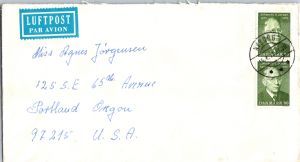 LUFTPOST
PAR AVION
Miss Agnes Jörgensen
125 S.E 65th Avenue
Portland Oregon
97215 U.S.A.
DANMARK